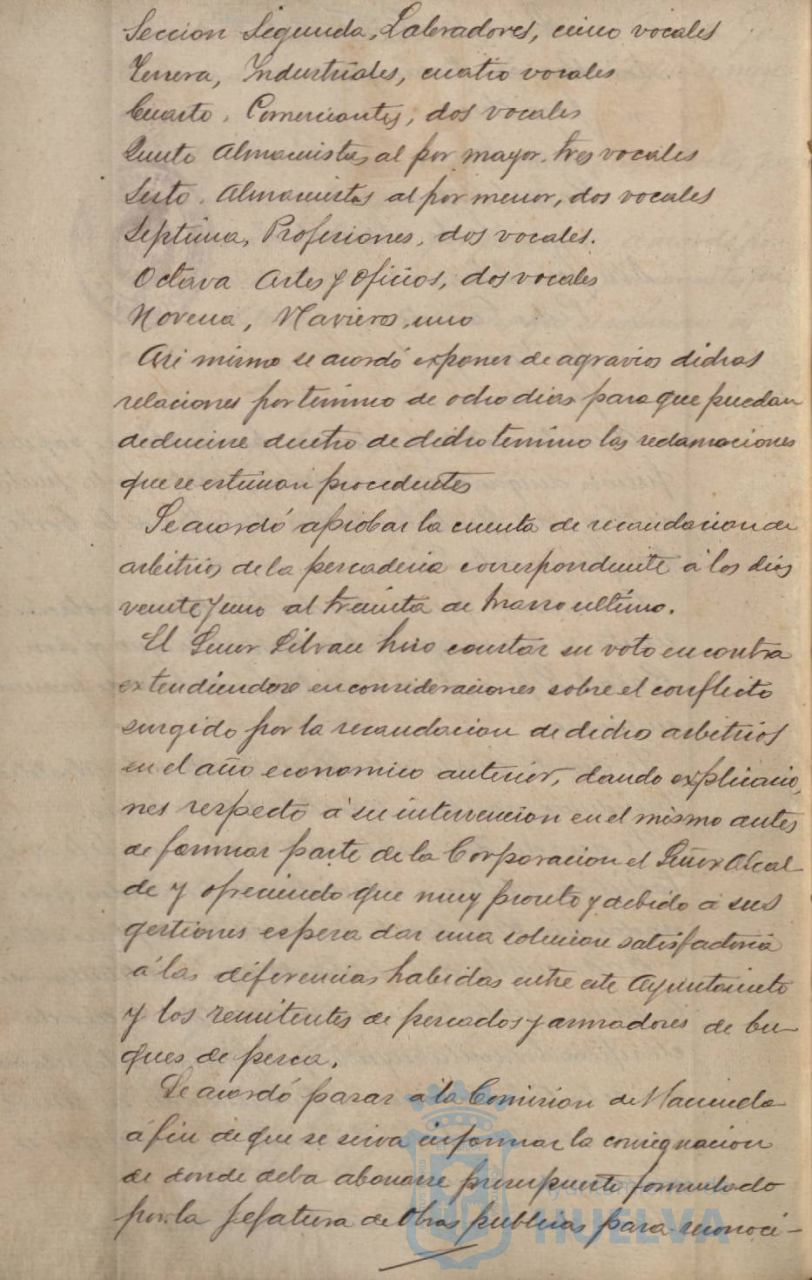 Seccion Segunda, Labradores, cinco vocales
Tercera, Industriales, cuatro vocales
Cuarto, Comerciantes, dos vocales
Quinto Almacenistas al por mayor, tres vocales
Sesto, Almacenistas al por menor, dos vocales
Septima, Profesiones, dos vocales.
Octava Artes y Oficios, dos vocales
Novena, Navieros, uno
Asi mismo se acordó exponer de agravios dichas
relaciones por termino de ocho dias para que puedan
deducirse dentro de dicho termino las reclamaciones
que se estiman procedentes
Se acordó aprobar la cuenta de recaudacion de
arbitrios de la pescaderia correspondiente á los dias
veinte y uno al treinta de Marzo ultimo.
El Señor hizo constar su voto en contra
extendiendose en consideraciones sobre el conflicto
surgido por la recaudacion de dicho arbitrios
en el año economico anterior, dando explicacio,
nes respecto á su intervencion en el mismo antes
de formar parte de la Corporacion el Señor Alcal-
de y ofreciendo que muy pronto y debido á sus
gestiones espera dar una solucion satisfactoria
á las diferencias habidas entre este Ayuntamiento
y los remitentes de pescados y armadores de bu-
ques de pesca.
Se acordó pasar á la Comision de Hacienda
á fin de que se sirva informar la consignacion
de donde deba abonarse presupuesto formulado
por la Jefatura de Obras publicas para reconoci-
HUELVA